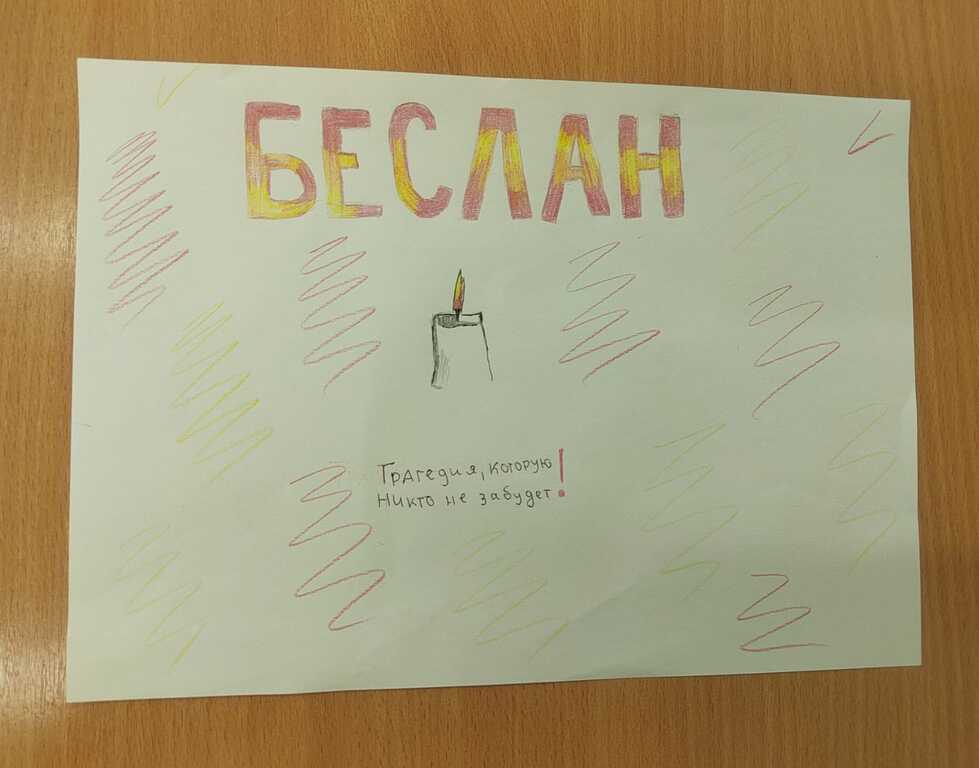 БЕСЛАН
Трагедия, которую
никто не забудет!